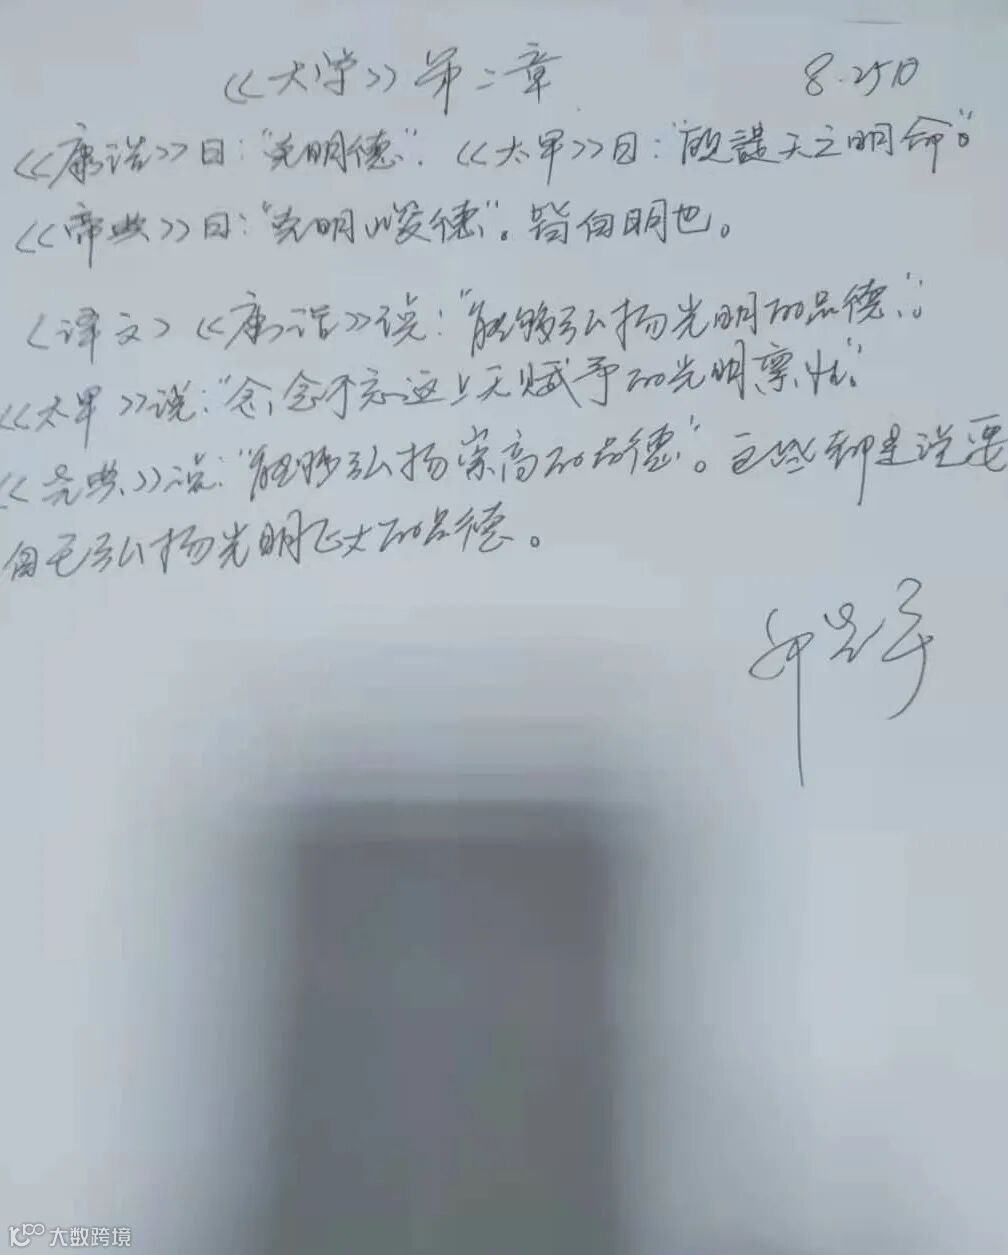 《大学》第二章 8.25日
《康诰》曰："克明德"。《太甲》曰："顾諟天之明命"。
《帝典》曰："克明峻德"。皆自明也。
〈译文〉《康诰》说："能够弘扬光明的品德"。
《太甲》说："念念不忘这上天赋予的光明禀性"。
《尧典》说："能够弘扬崇高的品德"。这些都是说要
自己弘扬光明正大的品德。
大数跨境